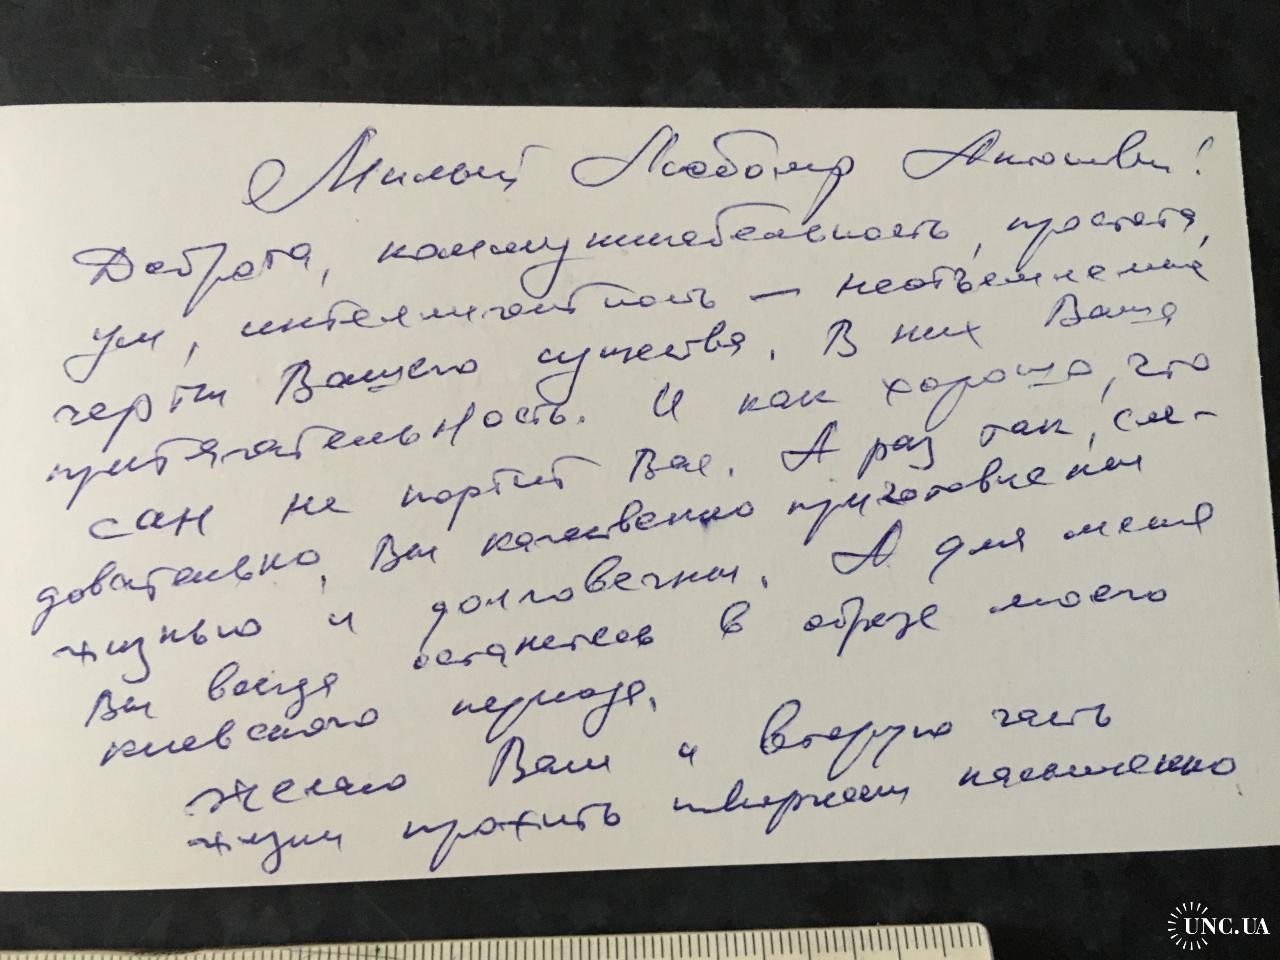 Милый Любомир Антонович!
Доброта, коммуникабельность, простота,
ум, интеллигентность — неотъемлемые
черты Вашего существа. В них Ваша
притягательность. И как хорошо, что
сан не портит Вас. А раз так, сле-
довательно, Вы качественно приготовлены
жизнью и долговечны. А для меня
Вы всегда останетесь в образе моего
киевского периода.
Желаю Вам и вторую часть
жизни прожить творчески насыщенно
UNC.UA